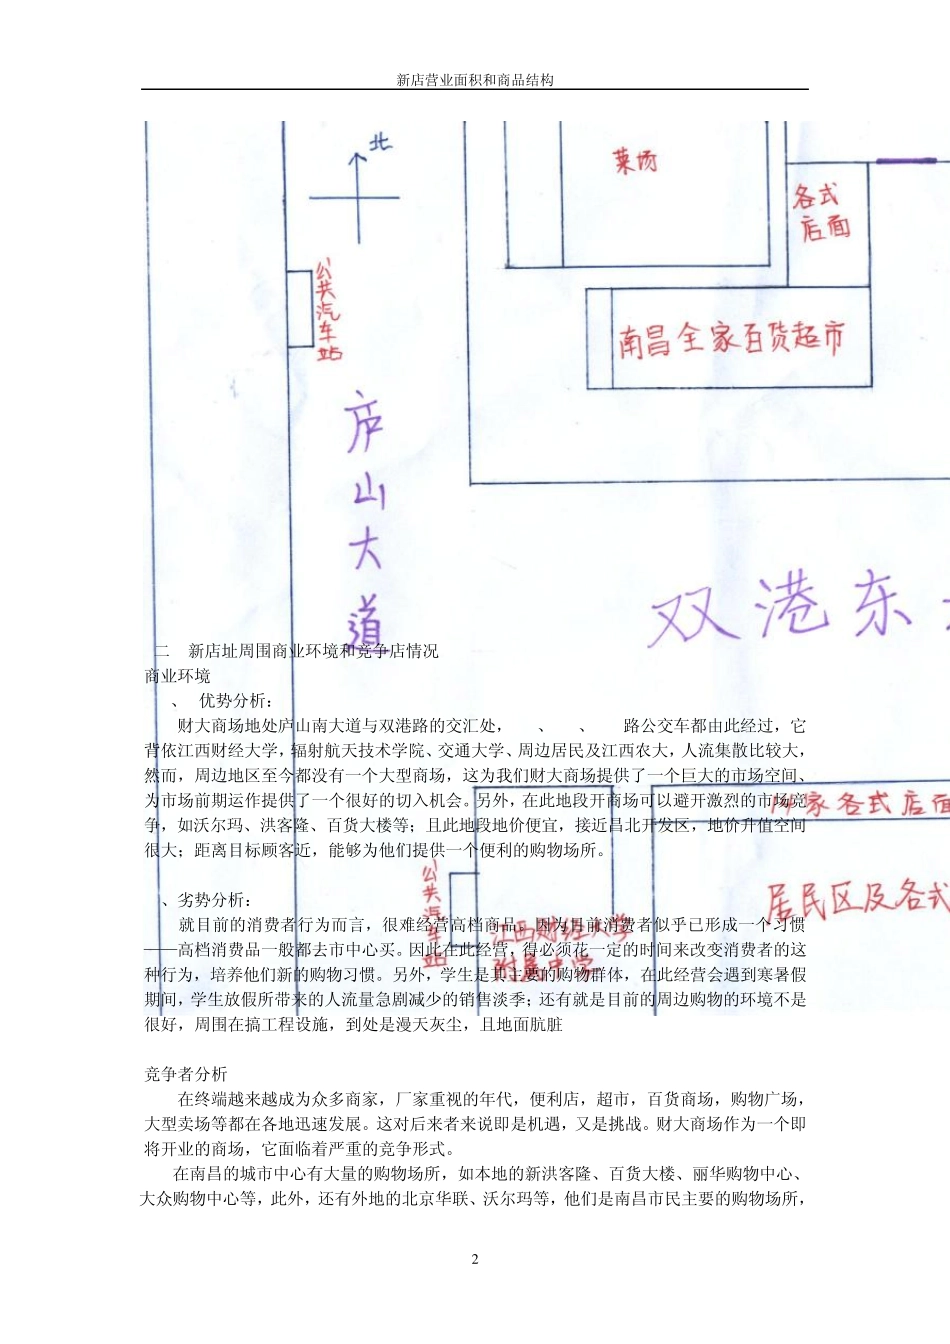 新店营业面积和商品结构
北
菜场
各式
店面
公共汽车站
南昌全家百货超市
庐山大道
双港东
二 新店址周围商业环境和竞争店情况
商业环境
、 优势分析：
财大商场地处庐山南大道与双港路的交汇处， 、 、 路公交车都由此经过，它
背依江西财经大学，辐射航天技术学院、交通大学、周边居民及江西农大，人流集散比较大，
然而，周边地区至今都没有一个大型商场，这为我们财大商场提供了一个巨大的市场空间、
为市场前期运作提供了一个很好的切入机会。另外，在此地段开商场可以避开激烈的市场竞
争，如沃尔玛、洪客隆、百货大楼等；且此地段地价便宜，接近昌北开发区，地价升值空间
很大；距离目标顾客近，能够为他们提供一个便利的购物场所。
家各式店面
公共汽车站
居民区及各式
江西财经大学
附属中学
、劣势分析：
就目前的消费者行为而言，很难经营高档商品，因为目前消费者似乎已形成一个习惯
——高档消费品一般都去市中心买。因此在此经营，得必须花一定的时间来改变消费者的这
种行为，培养他们新的购物习惯。另外，学生是其主要的购物群体，在此经营会遇到寒暑假
期间，学生放假所带来的人流量急剧减少的销售淡季；还有就是目前的周边购物的环境不是
很好，周围在搞工程设施，到处是漫天灰尘，且地面肮脏
竞争者分析
在终端越来越成为众多商家，厂家重视的年代，便利店，超市，百货商场，购物广场，
大型卖场等都在各地迅速发展。这对后来者来说即是机遇，又是挑战。财大商场作为一个即
将开业的商场，它面临着严重的竞争形式。
在南昌的城市中心有大量的购物场所，如本地的新洪客隆、百货大楼、丽华购物中心、
大众购物中心等，此外，还有外地的北京华联、沃尔玛等，他们是南昌市民主要的购物场所，
2